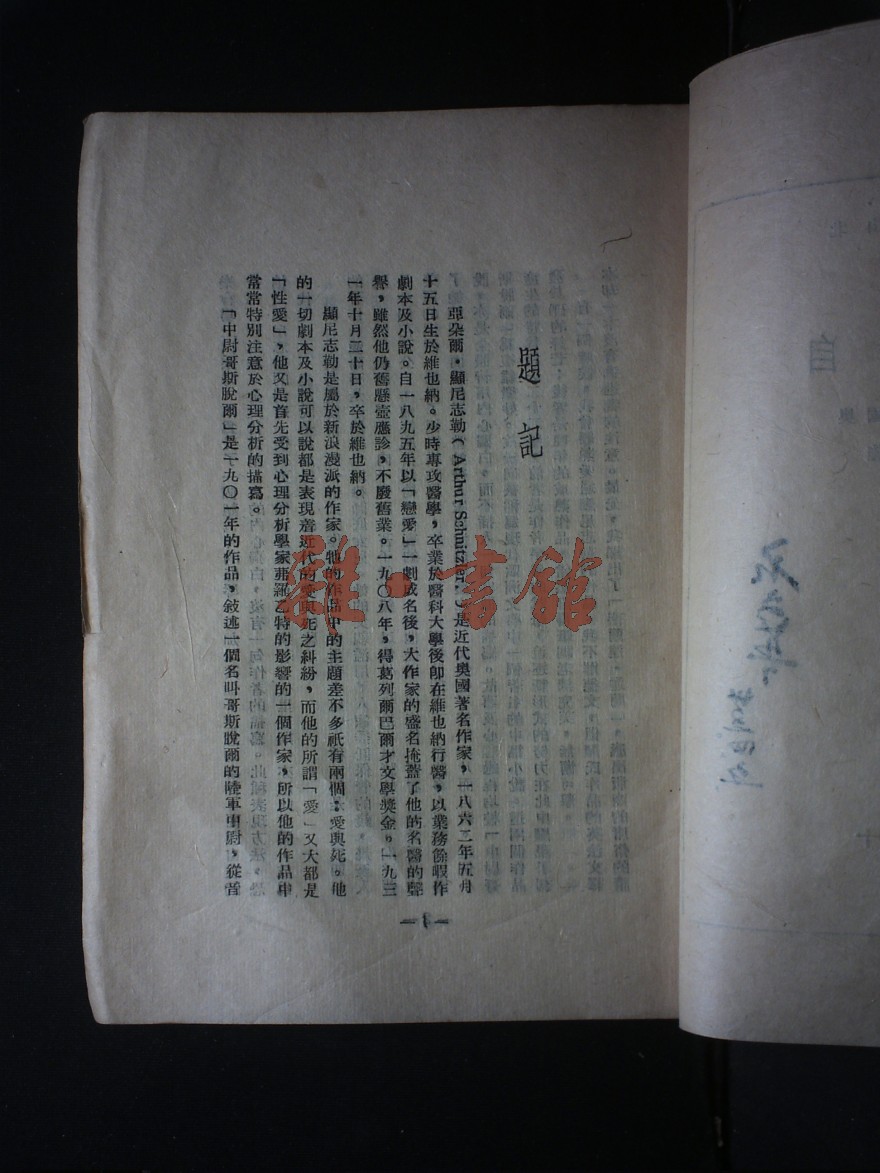 題記
亞朵爾·顯尼志勒(Arthur Schnitzler,)是近代奧國著名作家,一八六二年五月
十五日生於維也納。少時專攻醫學,卒業於醫科大學後卽在維也納行醫,以業務餘暇作
劇本及小說。自一八九五年以「戀愛」一劇成名後,大作家的盛名掩蓋了他的名醫的聲
譽,雖然他仍舊懸壺應診,不廢舊業。一九〇八年,得葛列爾巴爾才文學獎金。一九三
一年十月二十日,卒於維也納。
顯尼志勒是屬於新浪漫派的作家。他的作品中的主題差不多祇有兩個:愛與死。他
的一切劇本及小說可以說都是表現着近代的愛與死之糾紛,而他的所謂「愛」又大都是
「性愛」,他又是首先受到心理分析學家弗羅乙特的影響的一個作家,所以他的作品中
常常特別注意於心理分析的描寫。
「中尉哥斯脫爾」是一九〇一年的作品,敍述一個名叫哥斯脫爾的陸軍中尉,從音
—1—
雜·書館
自